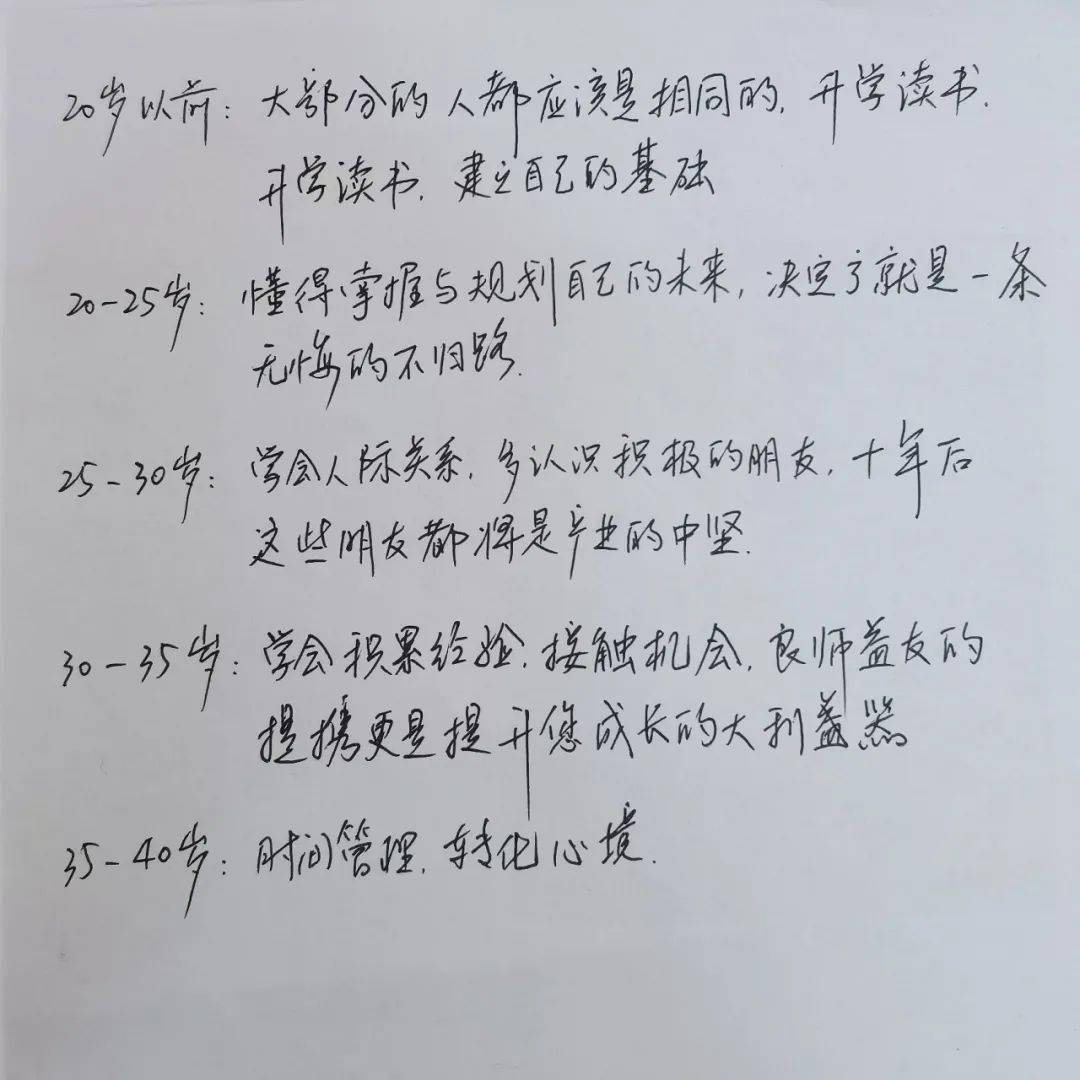 20岁以前：大部分的人都应该是相同的，升学读书，
升学读书，建立自己的基础
20-25岁：懂得掌握与规划自己的未来，决定了就是一条
无悔的不归路.
25-30岁：学会人际关系，多认识积极的朋友，十年后
这些朋友都将是产业的中坚.
30-35岁：学会积累经验，接触机会，良师益友的
提携更是提升您成长的大利益器
35-40岁：时间管理，转化心境.